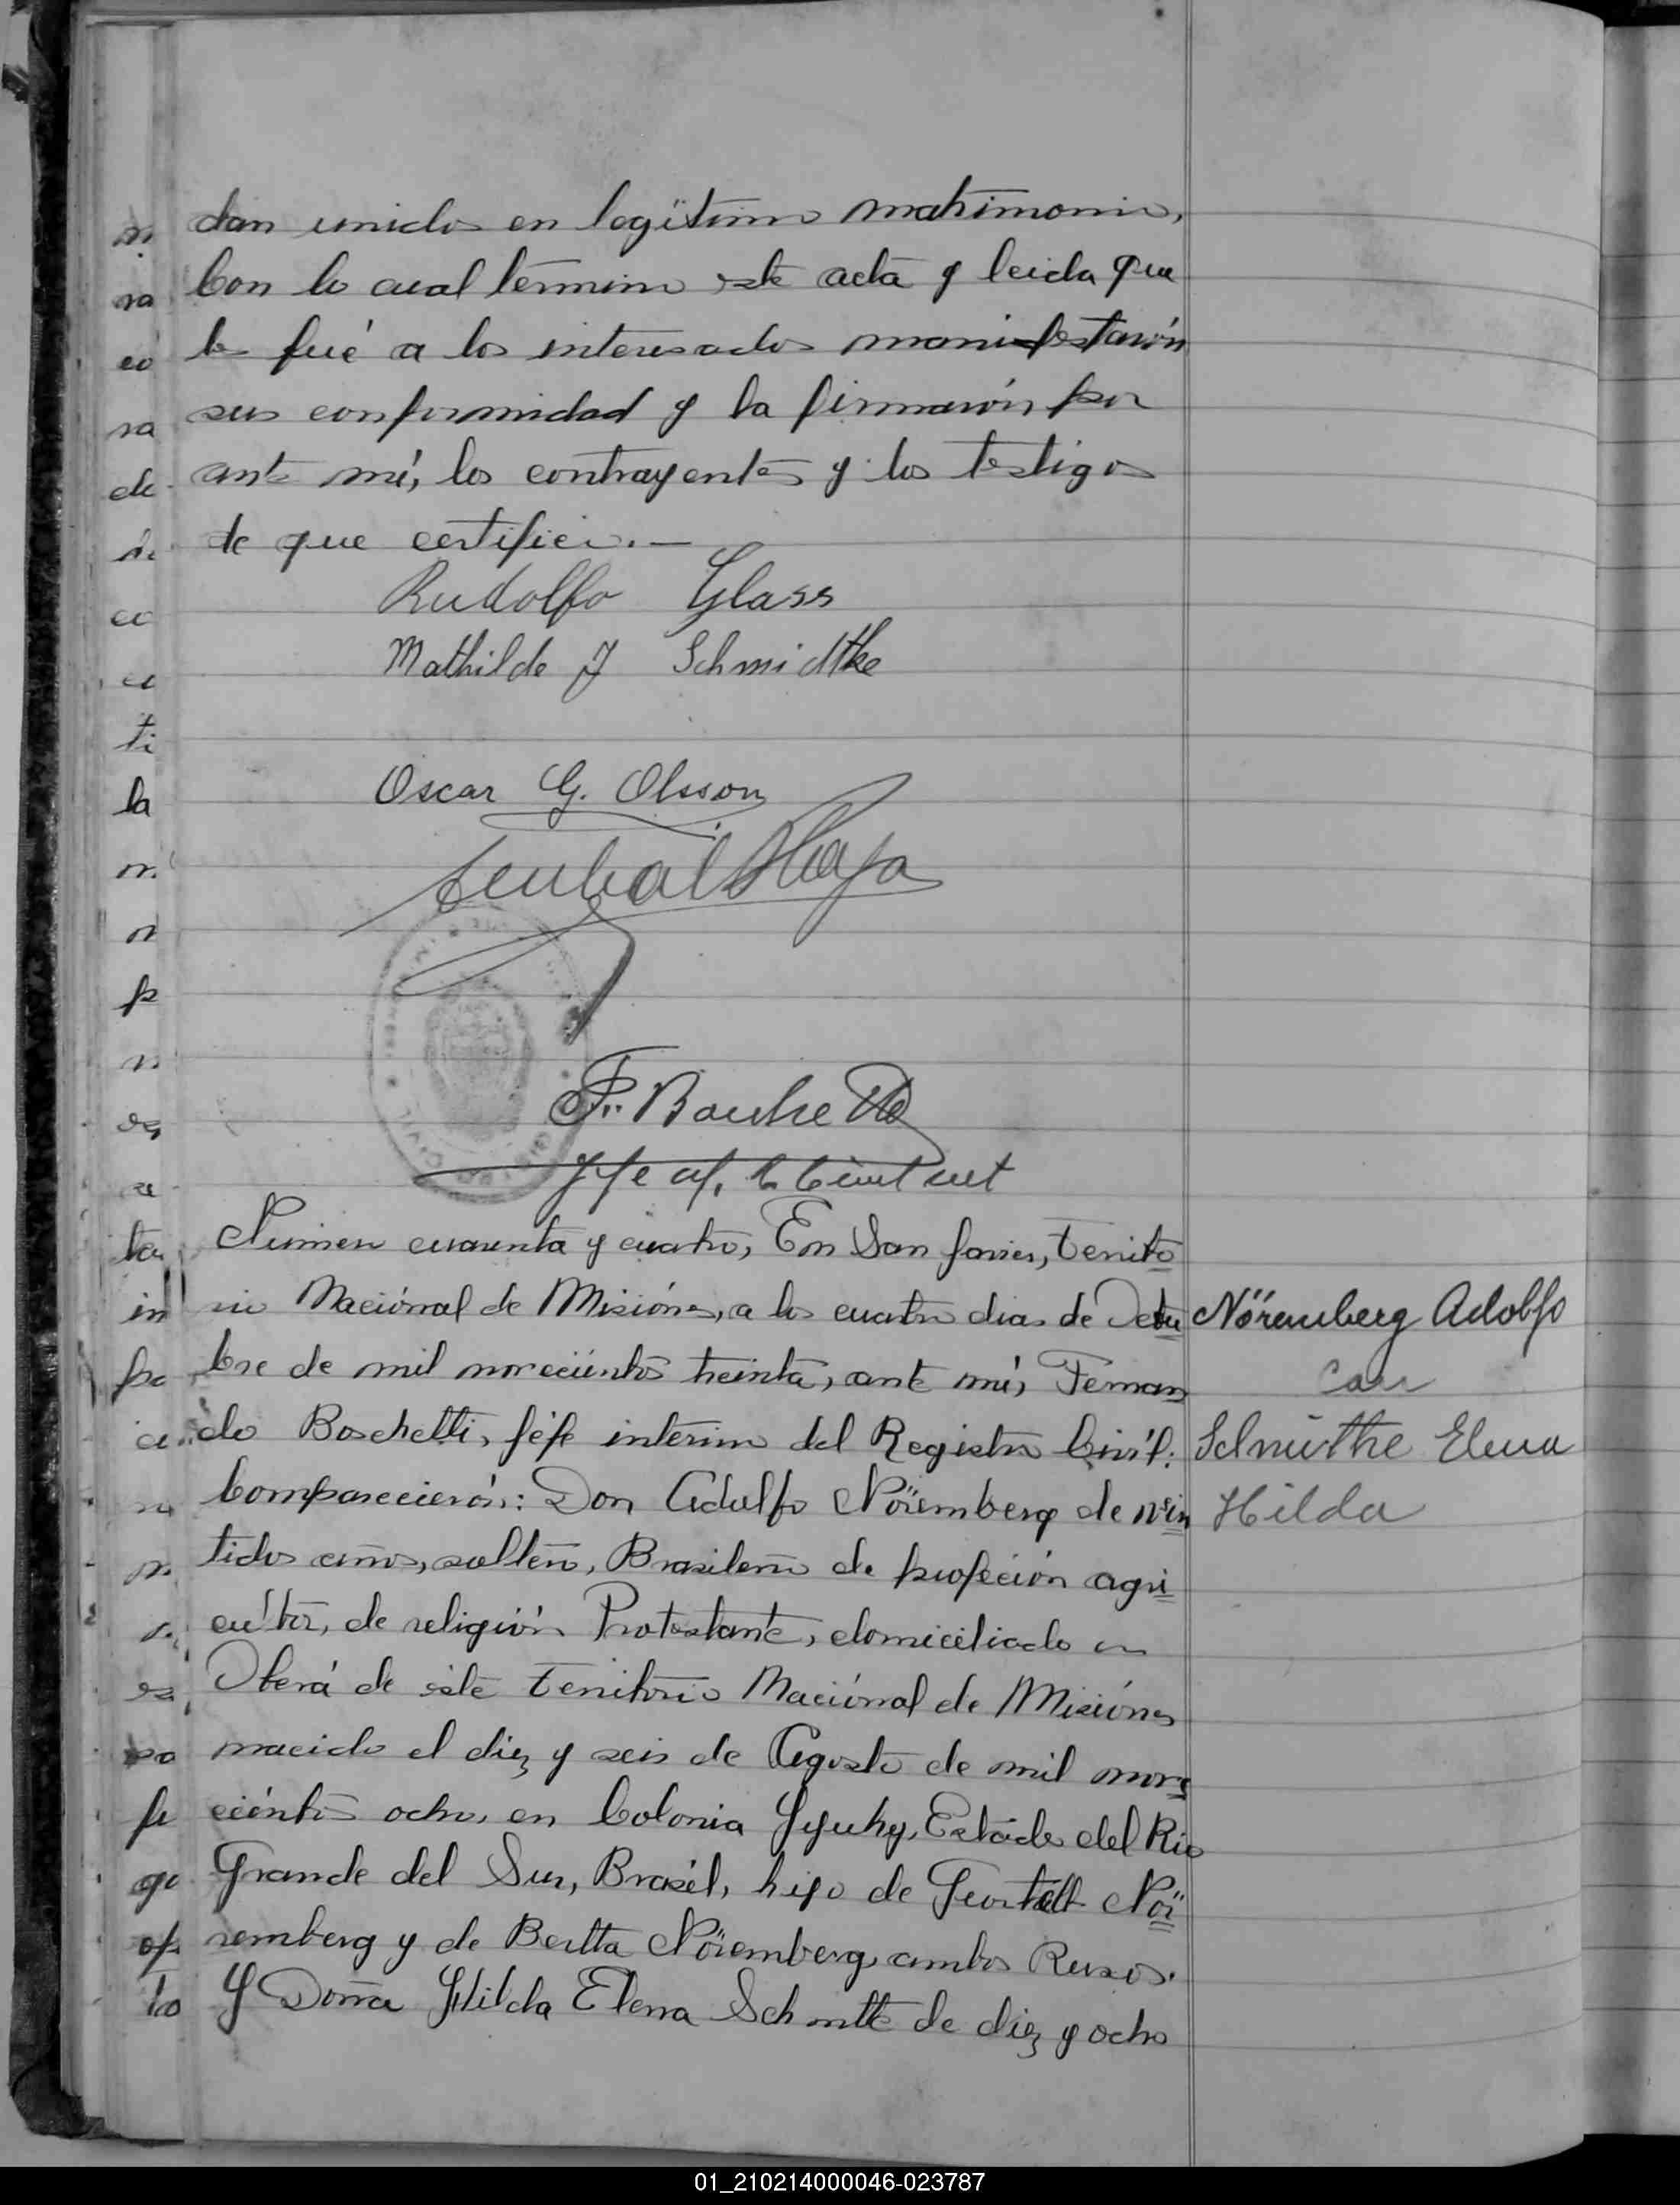 dan unidos en legitimo matrimonio,
Con lo cual términa este acta y leida que
les fué a los interesados manifestarón
sus conformidad y la firmarón por
ante mí, los contrayentes y los testigos
de que certifico.—
Rudolfo Glass
Mathilde J Schmidtke
Oscar G. Olsson
F. Boschetti
Jefe
Número cuarenta y cuatro, En San Javier, Territo
rio Naciónal de Misiónes, a los cuatro dias de Octu
bre de mil noveciéntos treinta, ante mí, Fernan
do Boschetti, Jefe interino del Registro Civil:
Comparecierón: Don Adolfo Nöremberg de vein
tidos años, soltero, Brasilero de profeción agri
cultor, de religión Protestante, domiciliado en
Oberá de éste Territorio Naciónal de Misiónes
nacido el diez y seis de Agosto de mil nove
ciéntos ocho, en Colonia Yjuhy, Estado del Rio
Grande del Sur, Brasil, hijo de Nö
remberg y de Bertta Nöremberg, ambos Rusos.
Y Doña Hilda Elena Schmitte de diez y ocho
Nöremberg Adolfo
con
Schmithe Elena
Hilda
la
01_210214000046-023787